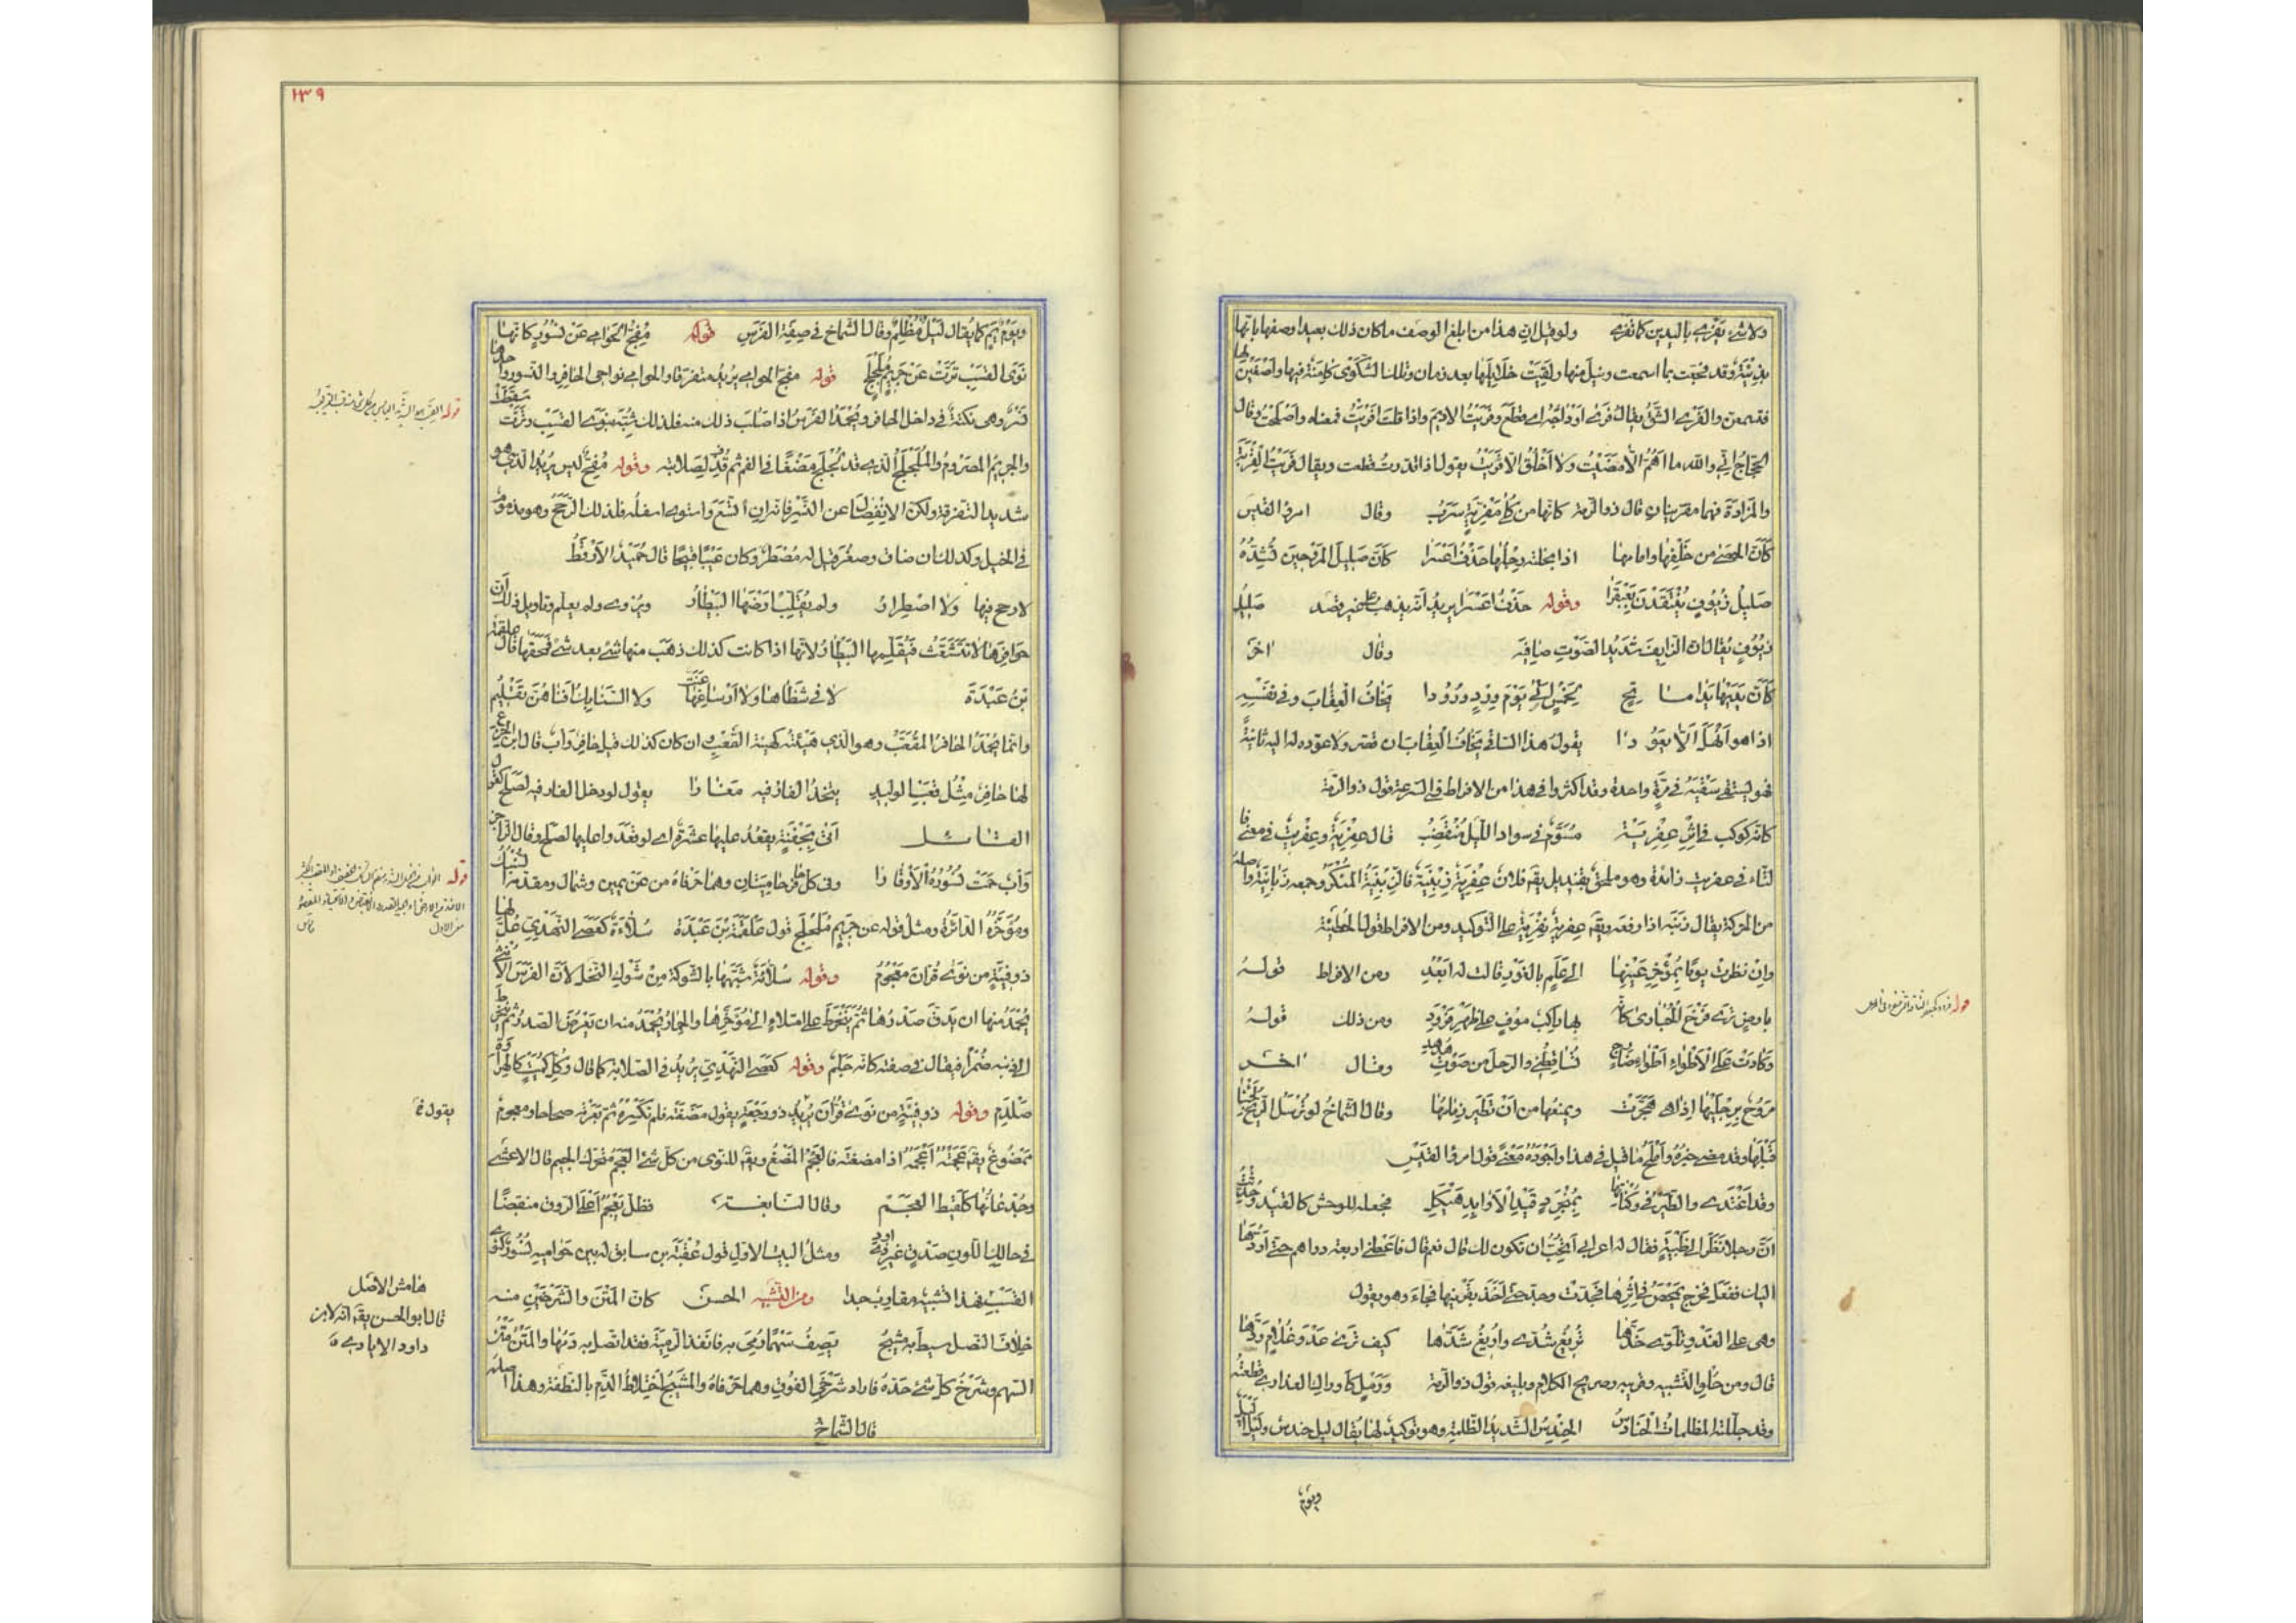 ولا شيء يفري باليدين كما تفري ولو قيل ان هذا من ابلغ الوصف ما كان ذلك بعيدا وصفها بانها
بذيئة وقد فجعت بما اسمعت ونيل منها ولقيت خلايلها بعد زمان وتلك الشكوى كامنة فيها واصغين لها
فتسمعن والفري الشق يقال فرى اوداجه اي قطع وفريت الاديم واذا قلت افريت فمعناه واصلحت وقال
الحجاج اني والله ما اهم الا مضيت ولا اخلق الا فريت يقول اذا قدرت قطعت ويقال فريت القربة
والمزادة فهما مفريتان قال ذو الرمة كانها من كلى مفرية سرب وقال امرؤ القيس
كأن الحصى من خلفها وامامها اذا نجلته رجلها حذف اعسرا كأن صليل المرو حين تشذه
صليل زيوف ينتقدن بعبقرا وقوله حذف اعسرا يريد انه يذهب على غير قصد صليل
زيوف يقال ان الزايف شديد الصوت صافيه وقال اخر
كأن يديها يدا ماتح يخاف العقاب وفي نفسه
اذا هو انهل الا يعودا يقول هذا الساقي يخاف العقاب ان قصر ولا عودة له اليه ثانية
فهو يستفي سقيه في مرة واحدة وقد اكثروا في هذا من الافراط في السرعة قول ذو الرمة
كانه كوكب في اثر عفرية مسوم في سواد الليل منقضب قال عفرية وعفريت في معنى فا
لتاء في عفريت زائدة وهو ملحق بقنديل يقه فلان عفرية زبنية فالزبنية المنكر وجمعه زبانية واصله
من الحركة يقال زبنه اذا دفعه ويقه عفرية نفرية على التوكيد ومن الافراط قول الحطيئة
وان نظرت يوما بمؤخر عينها الى علم بالغور قالت له ابعد ومن الافراط قوله
بارض ترى فرخ الحبارى كانه بها راكب موف على ظهر قردد ومن ذلك قوله
وكادت على الاطواء اطواء ضارج تساقطني والرحل من صوت هدهد وقال اخر
مروح برجليها اذا هي هجرت ويمنعها من ان تطير زمامها وقال الشماخ
قبلها وقد مضى خبره واملح ما قيل في هذا واجوده معنى قول امرؤ القيس
وقد اغتدي والطير في وكناتها بمنجرد قيد الاوابد هيكل فجعله للوحش كالقيد وحدثت
ان رجلا نظر الى ظبية فقال له اعرابي اتحب ان تكون لك قال نعم قال فاعطني اربعة دراهم حتى اردها
اليك ففعل فخرج يمحص في اثرها فجدت وجد حتى اخذ بقرنيها فجاء وهو يقول
وهي على البعد تلوي خدها تريغ شدي واريغ شدها كيف ترى عدو غلام ردها
قال ومن حلو التشبيه وقريبه وصريح الكلام وبليغه قول ذو الرمة ورمل كاوراك العذارى قطعته
وقد جللته المظلمات الحنادس الحندس الشديد الظلمة وهو توكيد لها يقال ليل حندس وليل اليل
ويوم
قوله
١٣٩
ويوم يم كما يقال ليل مظلم وقال الشماخ في صفة الفرس قوله مفج الحوامي عن نسور كانها
نوى القسب ترت عن جريم ملجلج قوله مفج الحوامي يريد متفرقا والحوامي نواحي الحافر والنسور واحدها
نسر وهي نكتة في داخل الحافر ويحمد الفرس اذا صلب ذلك منه فلذلك شبه بنوى القسب وترت سقطت
والجريم المصروم والملجلج الذي قد لجلج مضغا في الفم ثم قذف لصلابته وقوله مفج ليس يريد الذي هو
شديد التفرقة ولكن الانفصال عن النسر فانه ان اتسع واستوى اسفله فذلك الرحح وهو مذموم
في الخيل وكذلك ان ضاق وصغر قيل له مضطر وكان عيبا قبيحا قال حميد الارقط
لا رحح فيها ولا اصطرار ولم يقلب ارضها البيطار ويروى ولم يقلم وتاويل ذلك ان
حوافرها لا تتشقق فيقلمها البيطار لانها اذا كانت كذلك ذهب منها شيء بعد شيء فمحقها قال علقمة
بن عبدة لا في شظاها ولا ارساغها عنت ولا السنابك افناهن تقليم
وانما يحمد الحافر المقعب وهو الذي هيئته كهيئة القعب وان كان كذلك قيل حافر وأب قال ابن الخرع
لها حافر مثل قعب الوليد يتخذ الفار فيه مغارا يقول لو دخل الفار فيه لصلح كقول
القائل اتى بجفنة يقعد عليها عشرة اي لو قعدوا عليها لصلح وقال الراجز
وأب حمت نسوره الاوقارا
ومؤخره الدائرة ومثل قوله عن جريم ملجلج قول علقمة بن عبدة سلاءة كعصا النهدي غل لها
ذو فيئة من نوى قران معجوم وقوله سلاءة شبهها بالشوكة من شوك النخل لان الفرس الانثى
يحمد منها ان يدق صدرها ثم ينخرط على امتلاء الى مؤخرها والحمار يحمد منه ان يعرض الصدر ثم ينخرط
الى ذنبه ضمرا فيقال في صفته كانه جلم وقوله كعصا النهدي يريد في الصلابة كما قال وكل كميت كالهراوة
صلدم وقوله ذو فيئة من نوى قران يريد ذو رجعة يقول مضغته فلم تكسره ثم بعرته صحاحا ومعجوم
ممضوغ يقه عجمته اعجمه اذا مضغته فالعجم المضغ ويقه للنوى من كل شيء العجم مفتوح الجيم قال الاعشى
وجذعانها كلقيط العجم وقال النابغة فظل يعجم اعلى الروق منقبضا
في حالك اللون صدق غير ذي اود ومثل البيت الاول قول عقبة بن سابق له بين حواميه نسور كنوى
القسب فهذا تشبيه مقارب جدا ومن التشبيه الحسن كان المتن والشرخين منه
خلاف النصل سيط به مشيج يصف سهما رمي به فانفذ الرمية فقد اتصل به دمها والمتن متن
السهم وشرخ كل شيء حده فاراد شرخي الفوق وهما حرفاه والمشيج اختلاط الدم بالنطفة وهذا اصله
قال الشماخ
قوله
قوله
يقول
هامش الاصل
قال ابو الحسن يقه انه لابن
داود الايادي